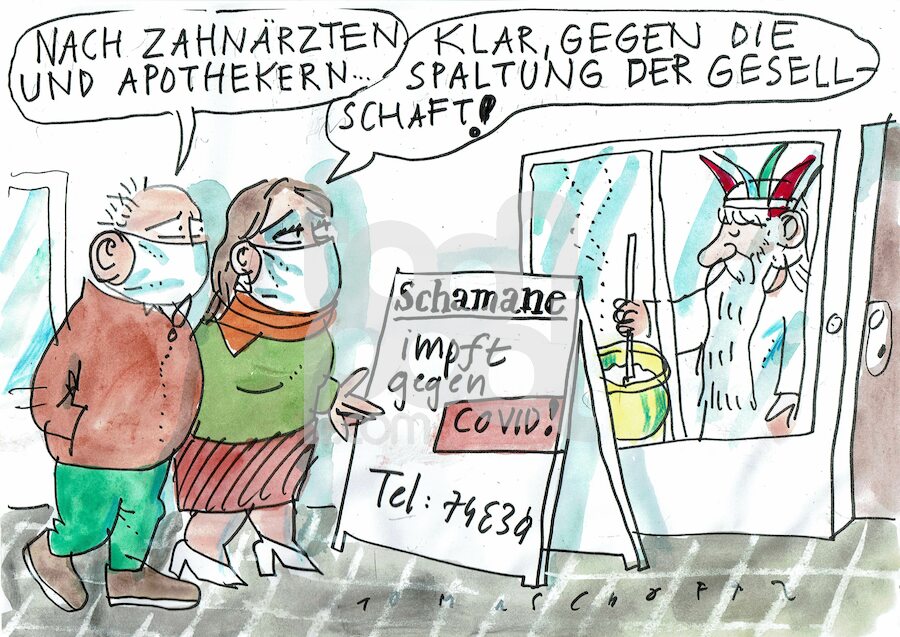 NACH ZAHNÄRZTEN
UND APOTHEKERN...
KLAR, GEGEN DIE
SPALTUNG DER GESELL-
SCHAFT!
Schamane
impft
gegen
COVID!
Tel: 74834
TOMASCHOFF